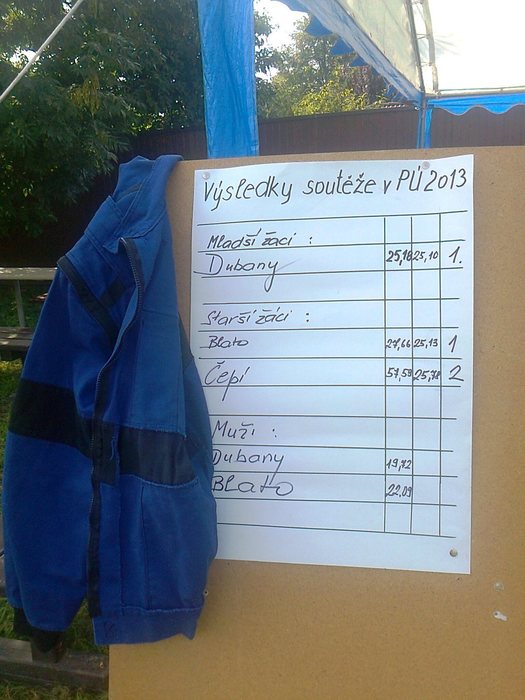 Výsledky soutěže v PÚ 2013
Mladší žáci :
Dubany 25,18 25,10 1.
Starší žáci :
Blato 27,66 25,13 1
Čepí 57,59 25,78 2
Muži :
Dubany 19,72
Blato 22,09